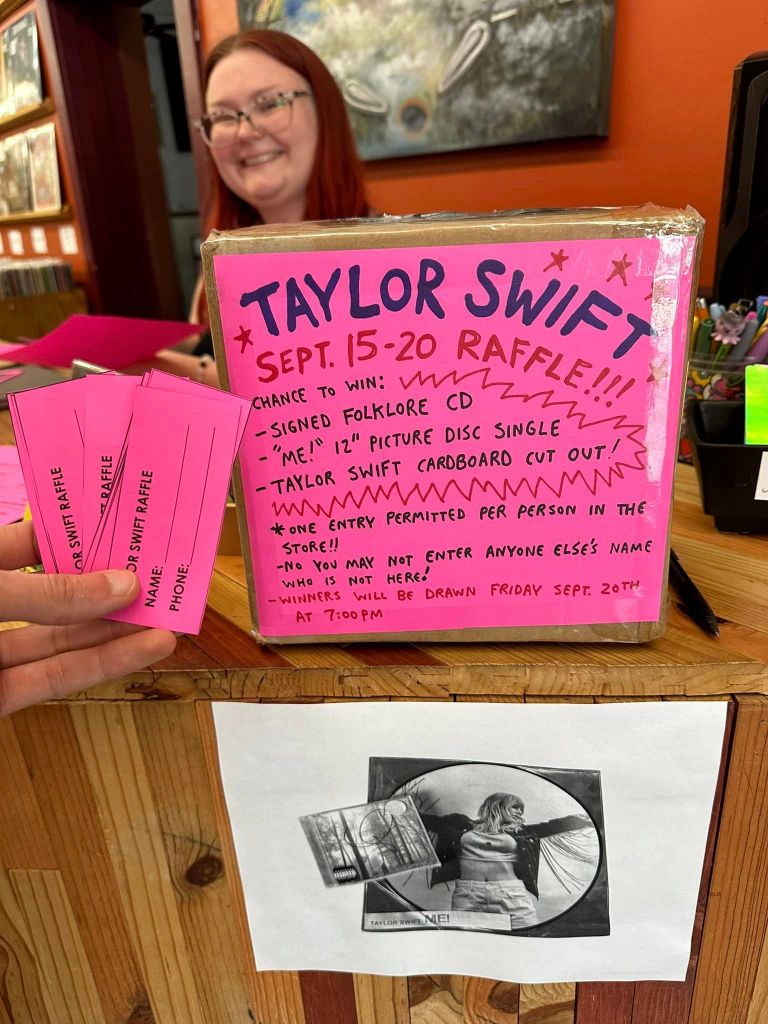 TAYLOR SWIFT
SEPT. 15-20 RAFFLE!!!
CHANCE TO WIN:
-SIGNED FOLKLORE CD
-"ME!" 12" PICTURE DISC SINGLE
-TAYLOR SWIFT CARDBOARD CUT OUT!
*ONE ENTRY PERMITTED PER PERSON IN THE
STORE!!
-NO YOU MAY NOT ENTER ANYONE ELSE'S NAME
WHO IS NOT HERE!
-WINNERS WILL BE DRAWN FRIDAY SEPT. 20TH
AT 7:00PM
OR SWIFT RAFFLE
OR RAFFLE
OR SWIFT RAFFLE
NAME:
PHONE:
TAYLOR SWIFT ME!